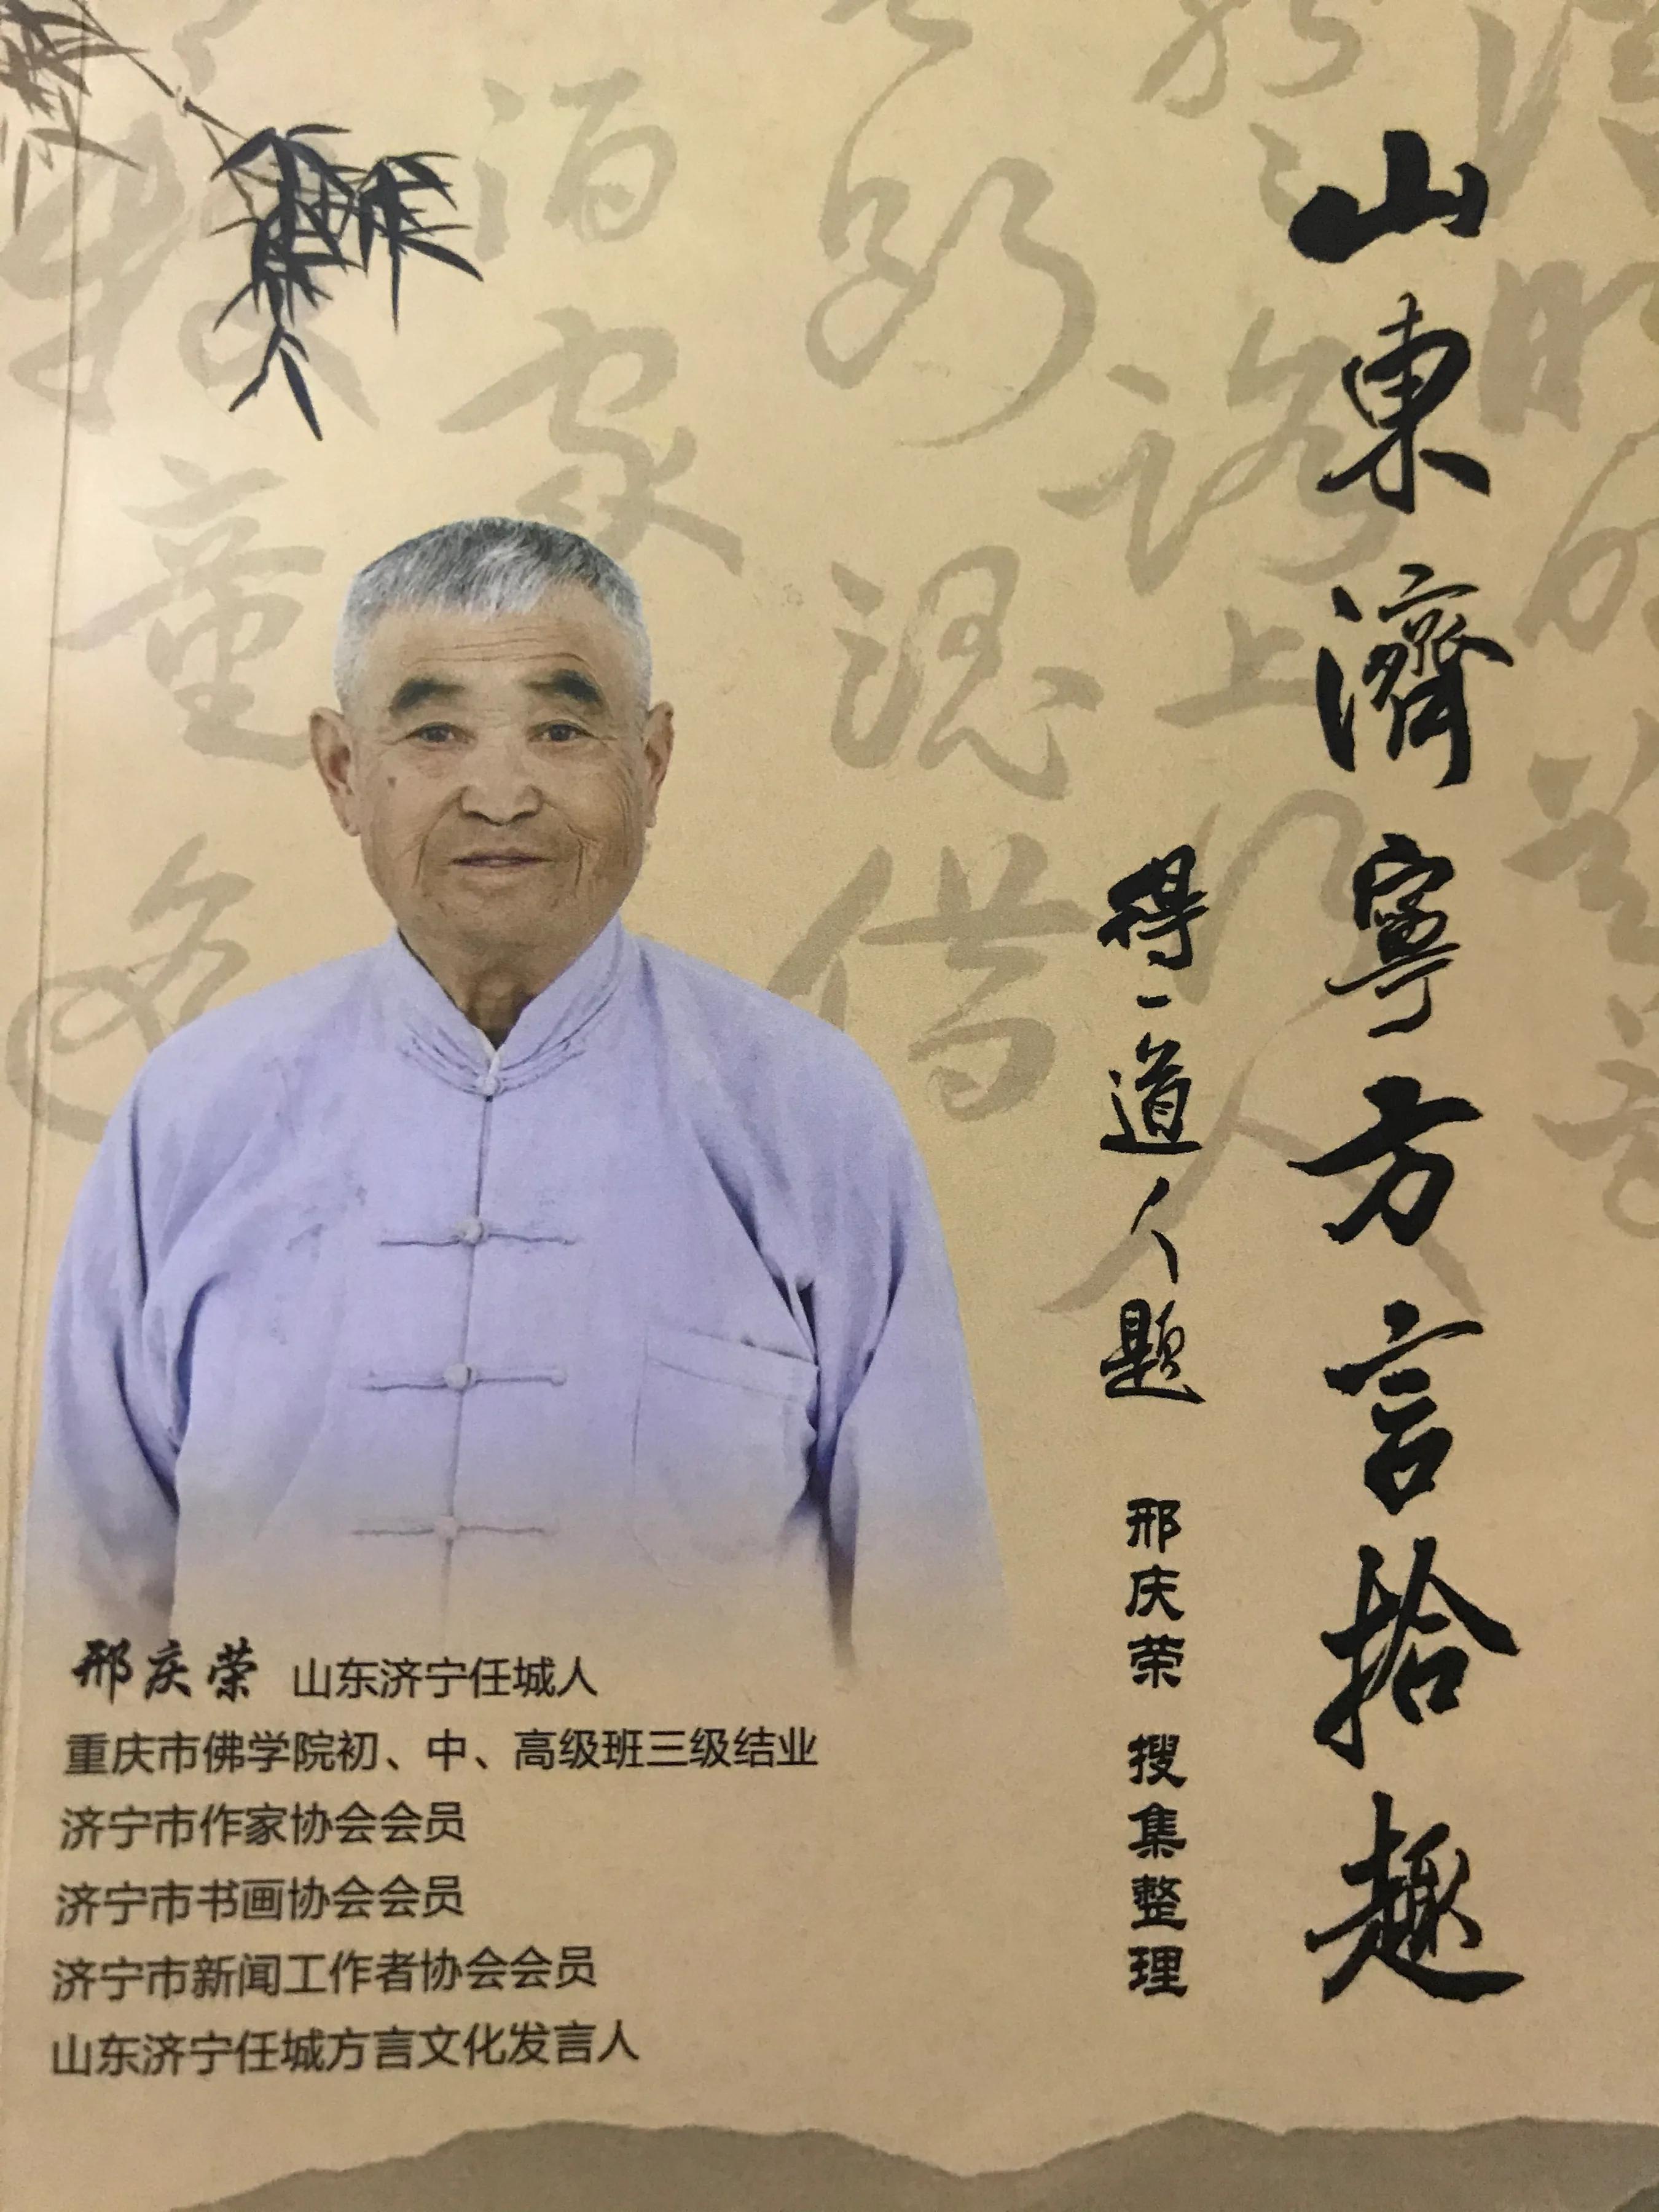 山東濟寧方言拾趣
得一道人题
邢庆荣 搜集整理
邢庆荣 山东济宁任城人
重庆市佛学院初、中、高级班三级结业
济宁市作家协会会员
济宁市书画协会会员
济宁市新闻工作者协会会员
山东济宁任城方言文化发言人
路上行人
魂借
酒家
童